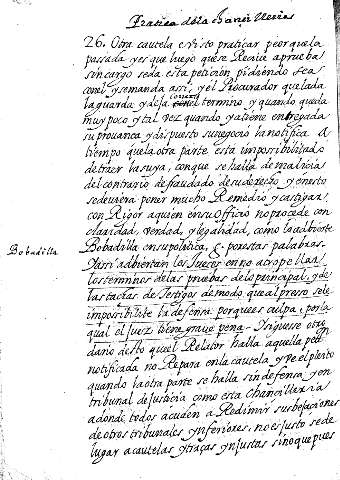 Pratica de la Chancilleria
26. Otra cautela e visto praticar peor que la
pasada, y es que luego que se Reciue aprueba
sin cargo se da esta peticion pidiendo sea
com y semanda assi, y el Procurador que la da
la guarda y deja correr el termino y quando queda
muy poco y tal vez quando ya tiene entregada
su prouanca y dispuesto su negocio la notifica a
tiempo que la otra parte esta imposibilitado
de traer la suya, con que se halla de malicia
del contrario defraudado de su derecho, y en esto
se deuiera poner mucho Remedio y castigar
con Rigor a quien en su officio no procede con
claridad, verdad, y legalidad, como lo aduierte
Bobadilla
Bobadilla en su politica, por estas palabras.
Y assi aduiertan los Jueces en no atropellar
los terminos de las pruebas de lo principal, y de
las tachas de testigos de modo que al preso se le
imposibilite la defensa porque es culpa, por la
qual el juez tiene graue pena. Siguese otro
daño desto que el Relator halla aquella petiçon
notificada no Repara en la cautela y ve el pleito
quando la otra parte se halla sin defensa y en
tribunal de Justicia como esta Chancilleria
a donde todos acuden a Redimir sus bejaciones
de otros tribunales ynferiores, no es justo se de
lugar a cautelas y traças ynjustas sino que pues